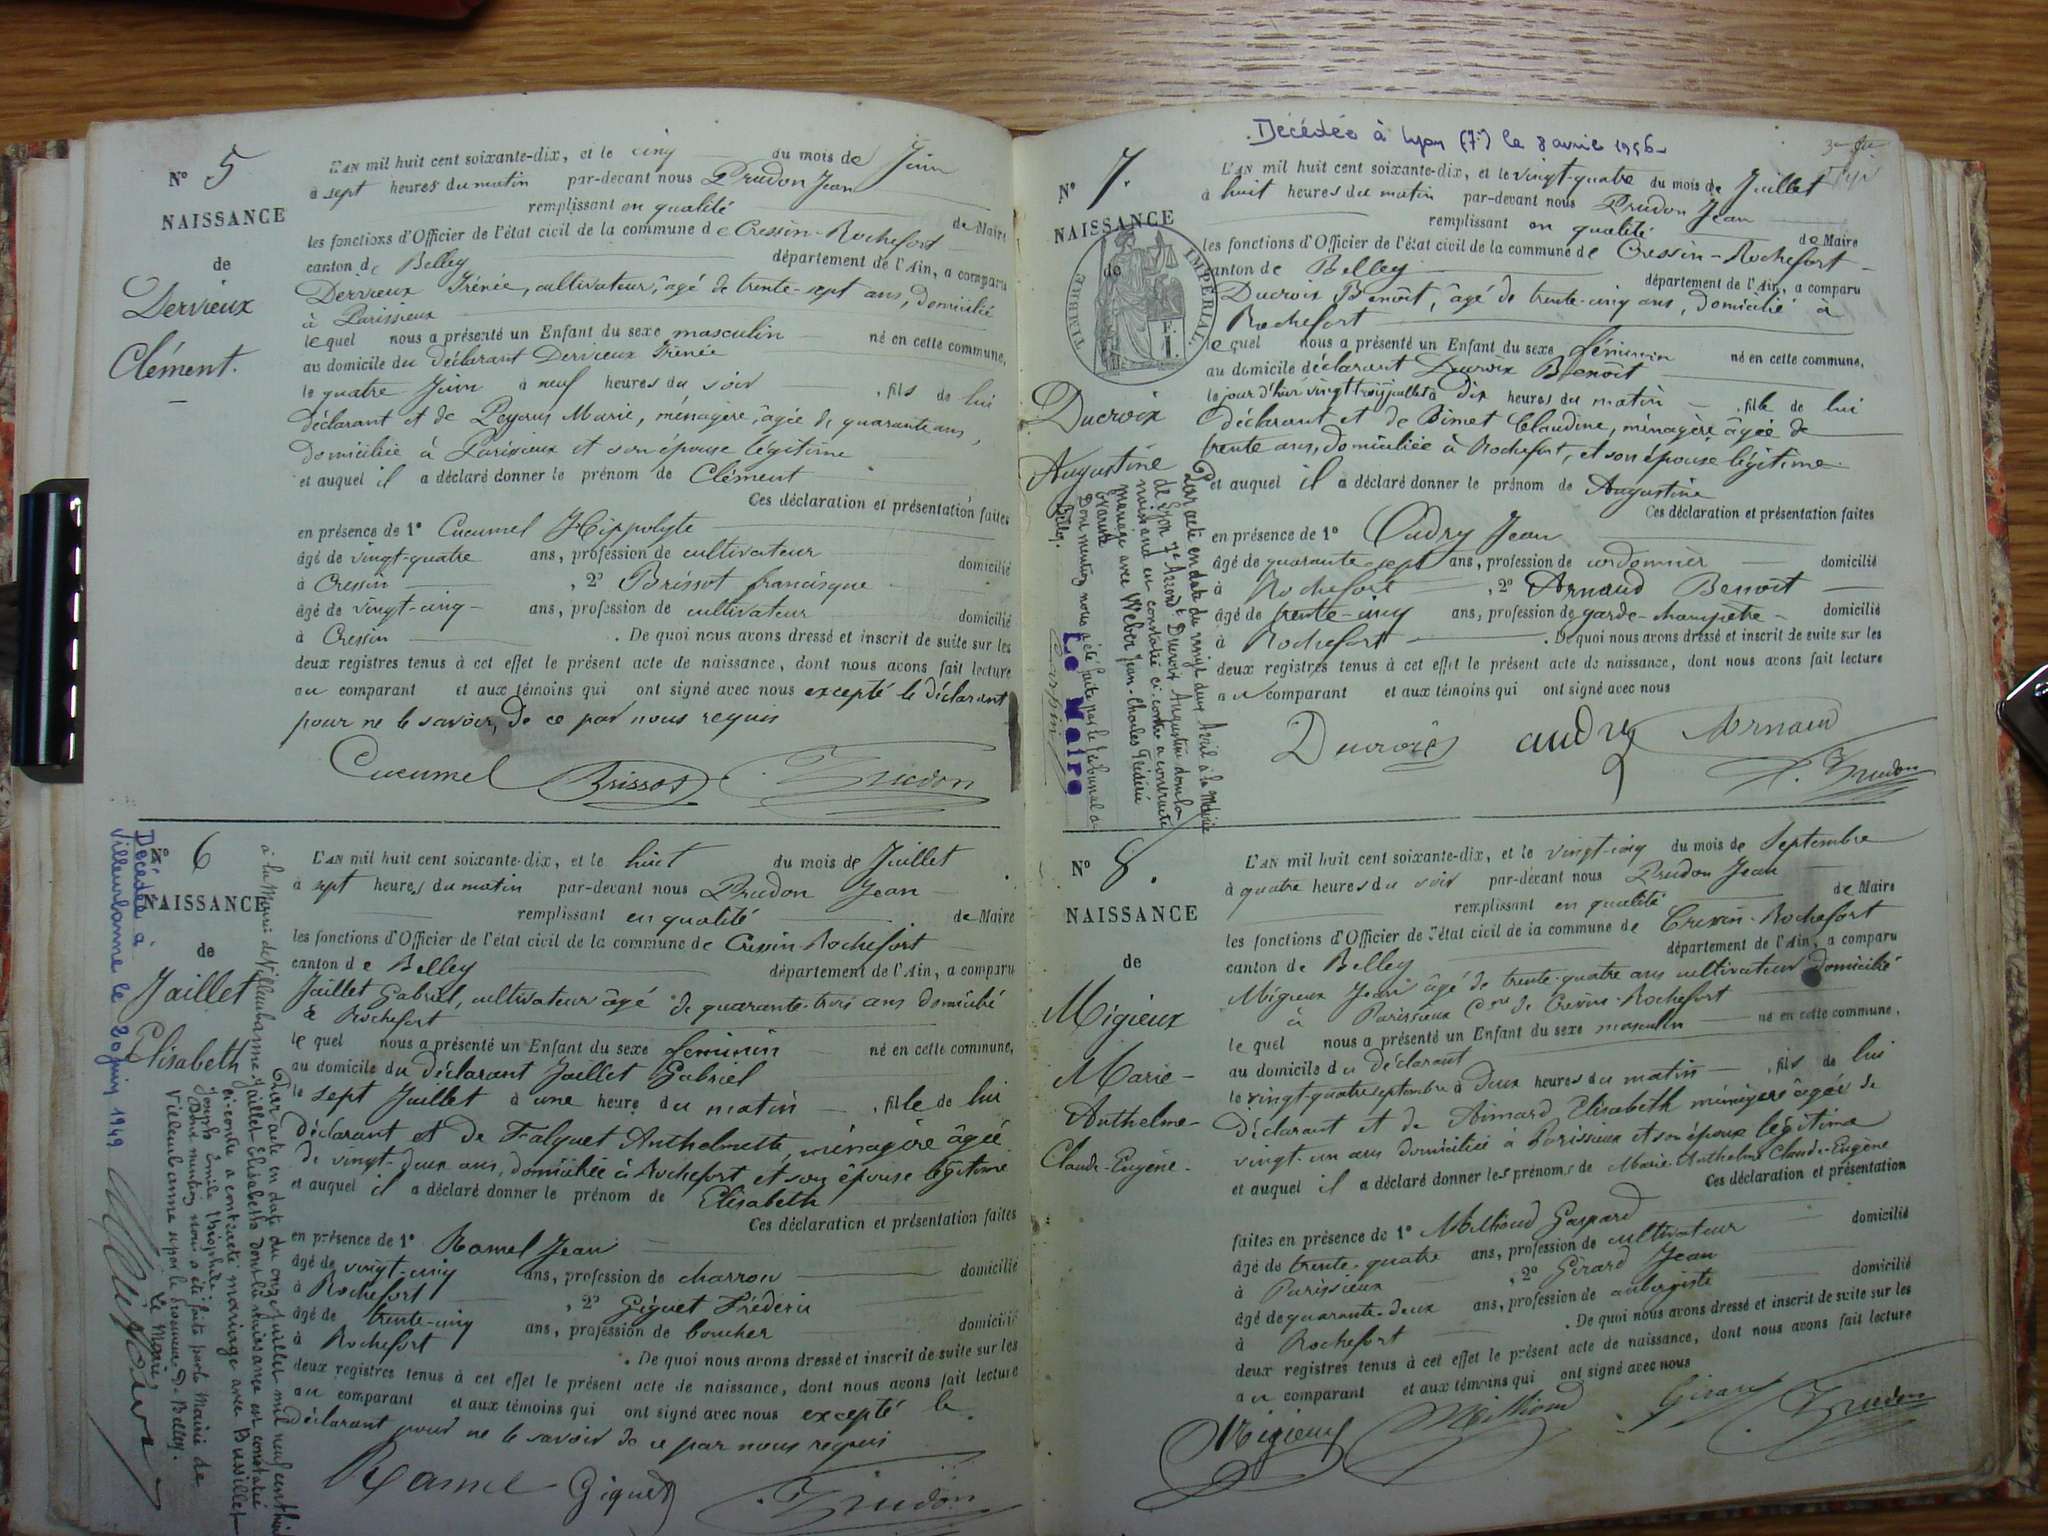 N° 5
NAISSANCE
de
Dervieux
Clément.
L'AN mil huit cent soixante-dix, et le cinq du mois de Juin
à sept heures du matin par-devant nous Prudon Jean
remplissant en qualité de Maire
les fonctions d'Officier de l'état civil de la commune de Cressin-Rochefort
canton de Belley département de l'Ain, a comparu
Dervieux Irénée, cultivateur, âgé de trente-sept ans, domicilié
à Parissieux
lequel nous a présenté un Enfant du sexe masculin né en cette commune,
au domicile du déclarant Dervieux Irénée
le quatre Juin à neuf heures du soir, fils de lui
déclarant et de Peyrus Marie, ménagère, âgée de quarante ans,
domiciliée à Parissieux et son épouse légitime
et auquel il a déclaré donner le prénom de Clément
Ces déclaration et présentation faites
en présence de 1° Cucumel Hippolyte
âgé de vingt-quatre ans, profession de cultivateur domicilié
à Cressin, 2° Brissot francisque
âgé de vingt-cinq ans, profession de cultivateur domicilié
à Cressin. De quoi nous avons dressé et inscrit de suite sur les
deux registres tenus à cet effet le présent acte de naissance, dont nous avons fait lecture
au comparant et aux témoins qui ont signé avec nous excepté le déclarant
pour ne le savoir, de ce par nous requis
Cucumel Brissot Prudon
N° 6
NAISSANCE
de
Jaillet
Elisabeth
Décédée à
Villeurbanne le 20 juin 1949
Par acte en date du onze Juillet mil neuf cent
à la Mairie de Villeurbanne Jaillet Elisabeth dont la naissance est constatée
ci-contre a contracté mariage avec Bussillet
Joseph Emile Théophile.
Dont mention nous a été faite par la Mairie de
Villeurbanne
Le Maire,
L'AN mil huit cent soixante-dix, et le huit du mois de Juillet
à sept heures du matin par-devant nous Prudon Jean
remplissant en qualité de Maire
les fonctions d'Officier de l'état civil de la commune de Cressin-Rochefort
canton de Belley département de l'Ain, a comparu
Jaillet Gabriel, cultivateur âgé de quarante-trois ans domicilié
à Rochefort
lequel nous a présenté un Enfant du sexe féminin né en cette commune,
au domicile du déclarant Jaillet Gabriel
le sept Juillet à une heure du matin, fille de lui
déclarant et de Falquet Anthelmette, ménagère âgée
de vingt-deux ans, domiciliée à Rochefort et son épouse légitime
et auquel il a déclaré donner le prénom de Elisabeth
Ces déclaration et présentation faites
en présence de 1° Ramel Jean
âgé de vingt-cinq ans, profession de charron domicilié
à Rochefort, 2° Giguet Fréderic
âgé de trente-cinq ans, profession de boucher domicilié
à Rochefort. De quoi nous avons dressé et inscrit de suite sur les
deux registres tenus à cet effet le présent acte de naissance, dont nous avons fait lecture
au comparant et aux témoins qui ont signé avec nous excepté le
déclarant pour ne le savoir de ce par nous requis
Ramel Giguet Prudon
Décédée à Lyon (7e) le 8 avril 1956
N° 7.
NAISSANCE
de
TIMBRE IMPÉRIAL
Ducroix
Augustine
Par acte en date du vingt deux Avril à la Mairie
de Lyon 7e Arrondt Ducroix Augustine dont la
naissance est constatée ci-contre a contracté
mariage avec Weber Jean-Charles Frédéric
Dont mention nous a été faite par le tribunal de
Belley.
Le Maire
L'AN mil huit cent soixante-dix, et le vingt-quatre du mois de Juillet
à huit heures du matin par-devant nous Prudon Jean
remplissant en qualité de Maire
les fonctions d'Officier de l'état civil de la commune de Cressin-Rochefort
canton de Belley département de l'Ain, a comparu
Ducroix Benoit, âgé de trente-cinq ans, domicilié à
Rochefort
lequel nous a présenté un Enfant du sexe féminin né en cette commune,
au domicile déclarant Ducroix Benoit
le jour d'hier vingt trois juillet à dix heures du matin, fille de lui
déclarant et de Bimet Claudine, ménagère âgée de
trente ans, domiciliée à Rochefort, et son épouse légitime
et auquel il a déclaré donner le prénom de Augustine
Ces déclaration et présentation faites
en présence de 1° Oudry Jean
âgé de quarante-sept ans, profession de cordonnier domicilié
à Rochefort, 2° Arnaud Benoit
âgé de trente-cinq ans, profession de garde-champêtre domicilié
à Rochefort. De quoi nous avons dressé et inscrit de suite sur les
deux registres tenus à cet effet le présent acte de naissance, dont nous avons fait lecture
au comparant et aux témoins qui ont signé avec nous
Ducroix audry Arnaud
Prudon
N° 8.
NAISSANCE
de
Migieux
Marie-
Anthelme-
Claude-Eugène.
L'AN mil huit cent soixante-dix, et le vingt-cinq du mois de Septembre
à quatre heures du soir par-devant nous Prudon Jean
remplissant en qualité de Maire
les fonctions d'Officier de l'état civil de la commune de Cressin-Rochefort
canton de Belley département de l'Ain, a comparu
Migieux Jean âgé de trente-quatre ans cultivateur domicilié
à Parissieux Cne de Cressin-Rochefort
lequel nous a présenté un Enfant du sexe masculin né en cette commune,
au domicile du déclarant
le vingt-quatre septembre à deux heures du matin, fils de lui
déclarant et de Aimard Elisabeth ménagère âgée de
vingt-un ans domiciliée à Parissieux et son épouse légitime
et auquel il a déclaré donner les prénoms de Marie Anthelme Claude-Eugène
Ces déclaration et présentation
faites en présence de 1° Millioud Gaspard
âgé de trente-quatre ans, profession de cultivateur domicilié
à Parissieux, 2° Girard Jean
âgé de quarante-deux ans, profession de aubergiste domicilié
à Rochefort. De quoi nous avons dressé et inscrit de suite sur les
deux registres tenus à cet effet le présent acte de naissance, dont nous avons fait lecture
au comparant et aux témoins qui ont signé avec nous
Migieux Millioud Girard Prudon